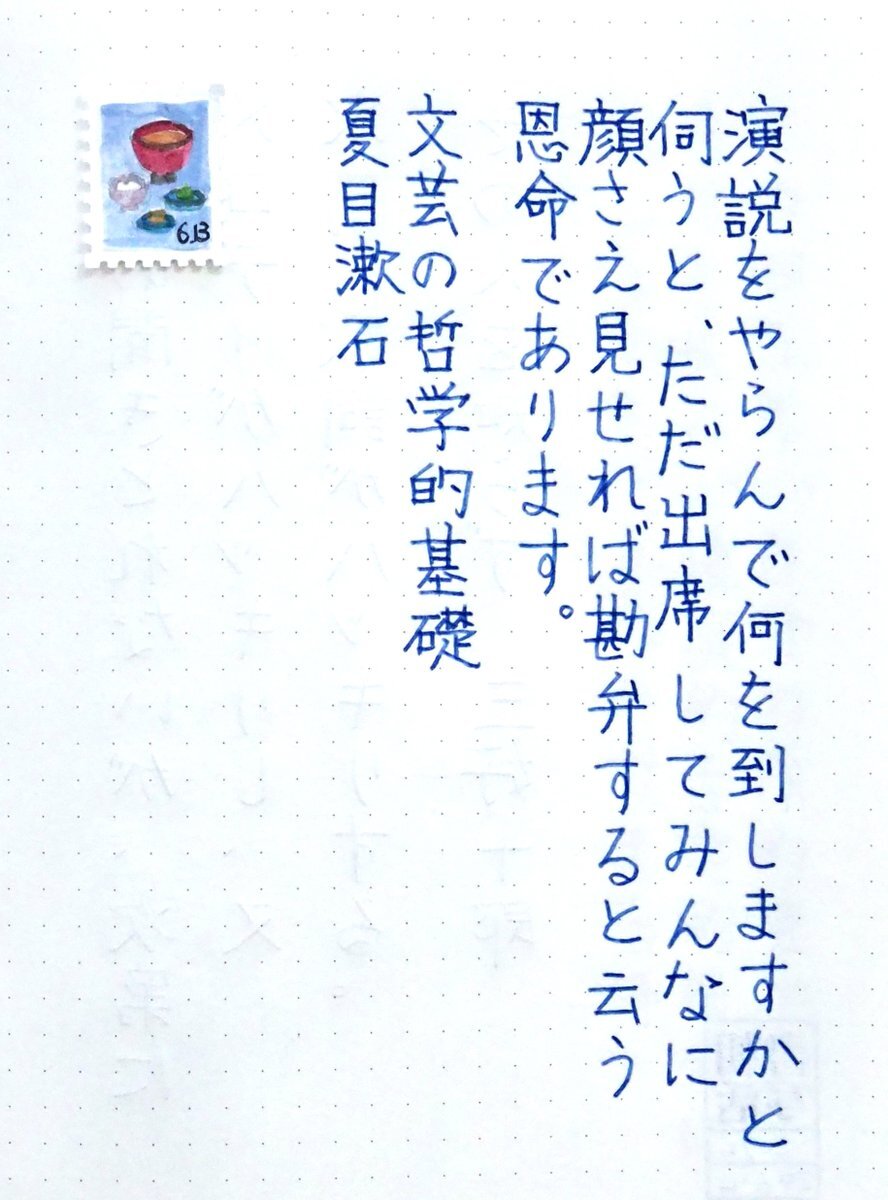 演説をやらんで何を到しますかと
伺うと、ただ出席してみんなに
顔さえ見せれば勘弁すると云う
恩命であります。
文芸の哲学的基礎
夏目漱石
6.13